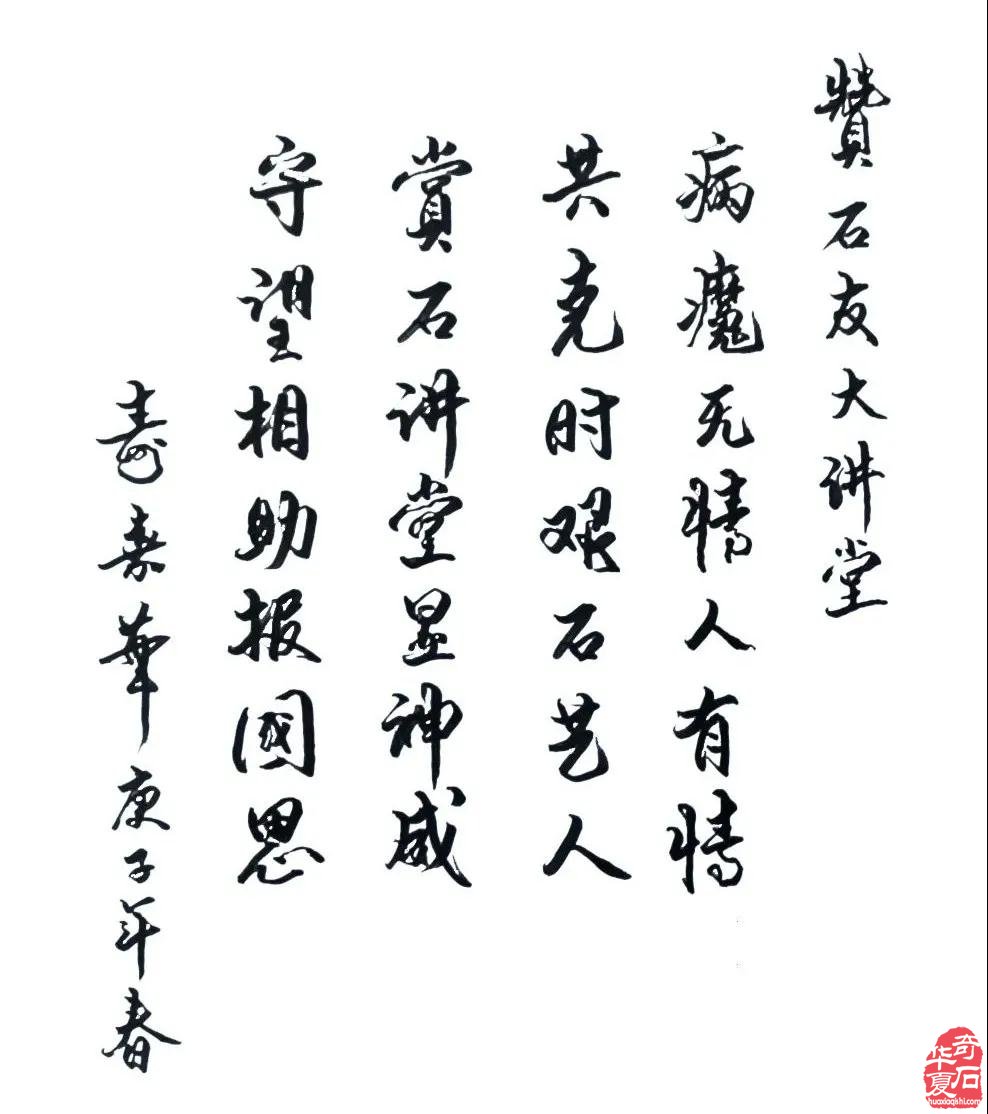 贊石友大讲堂
病魔无情人有情
共克时艰石艺人
賞石讲堂显神威
守望相助报國恩
壽華庚子年春
华夏
奇石
huaxiaqishi.com